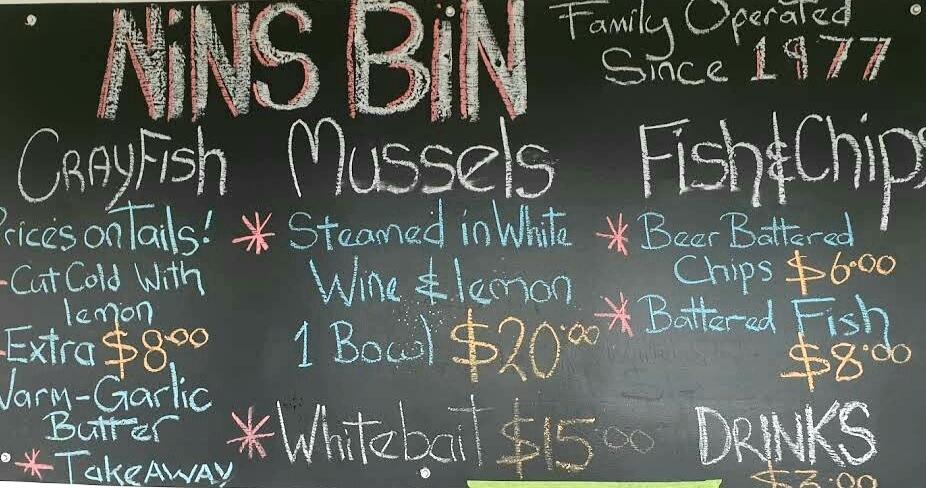 NiNS BiN
Family Operated
Since 1977
CRAYFish
Prices on Tails!
- Cut Cold With
lemon
- Extra $8.00
Warm-Garlic
Butter
* TAKEAWAY
Mussels
* Steamed in White
Wine & lemon
1 Bowl $20.00
* Whitebait $15.00
Fish & Chips
* Beer Battered
Chips $6.00
* Battered Fish
$8.00
DRINKS
$3.00